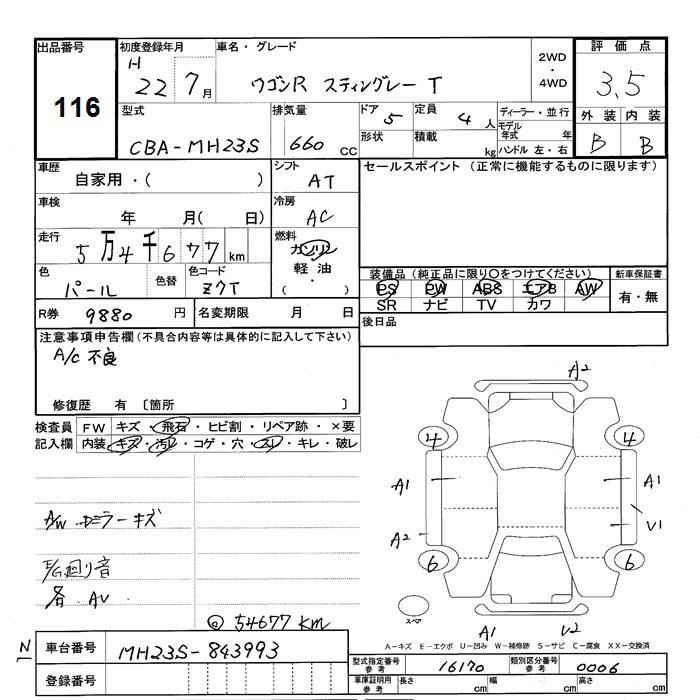 出品番号
116
初度登録年月
H
22 7月
車名・グレード
ワゴンR スティングレー T
2WD
・
4WD
評価点
3.5
外装 内装
B B
型式
CBA-MH23S
排気量
660 CC
ドア 5
形状
定員 4 人
積載 kg
ディーラー・並行
モデル年式 年
ハンドル 左・右
車歴
自家用・( )
シフト
AT
車検
年 月( 日)
冷房
AC
走行
5万4千677km
燃料
ガソリン
軽油
( ・ )
色
パール
色替
色コード
Z7T
R券 9880 円
名変期限 月 日
セールスポイント (正常に機能するものに限ります)
装備品 (純正品に限り〇をつけてください)
PS PW ABS エアB AW
SR ナビ TV カワ
新車保証書
有・無
後日品
注意事項申告欄(不具合内容等は具体的に記入して下さい)
A/C 不良
修復歴 有 〔箇所 〕
検査員記入欄
FW キズ・飛石・ヒビ割・リペア跡・×要
内装 キズ・汚レ・コゲ・穴・スレ・キレ・破レ
A/W ドミラーキズ
E/G廻り音
各 AU
@ 54677 km
A2
4 4
A1 A1
A2 V1
6 6
スペア
A1 V2
A-キズ E-エクボ U-凹み W-補修跡 S-サビ C-腐食 XX-交換済
車台番号
MH23S-843993
登録番号
型式指定番号参考 16170
類別区分番号参考 0006
車庫証明用参考
長さ cm 幅 cm 高さ cm